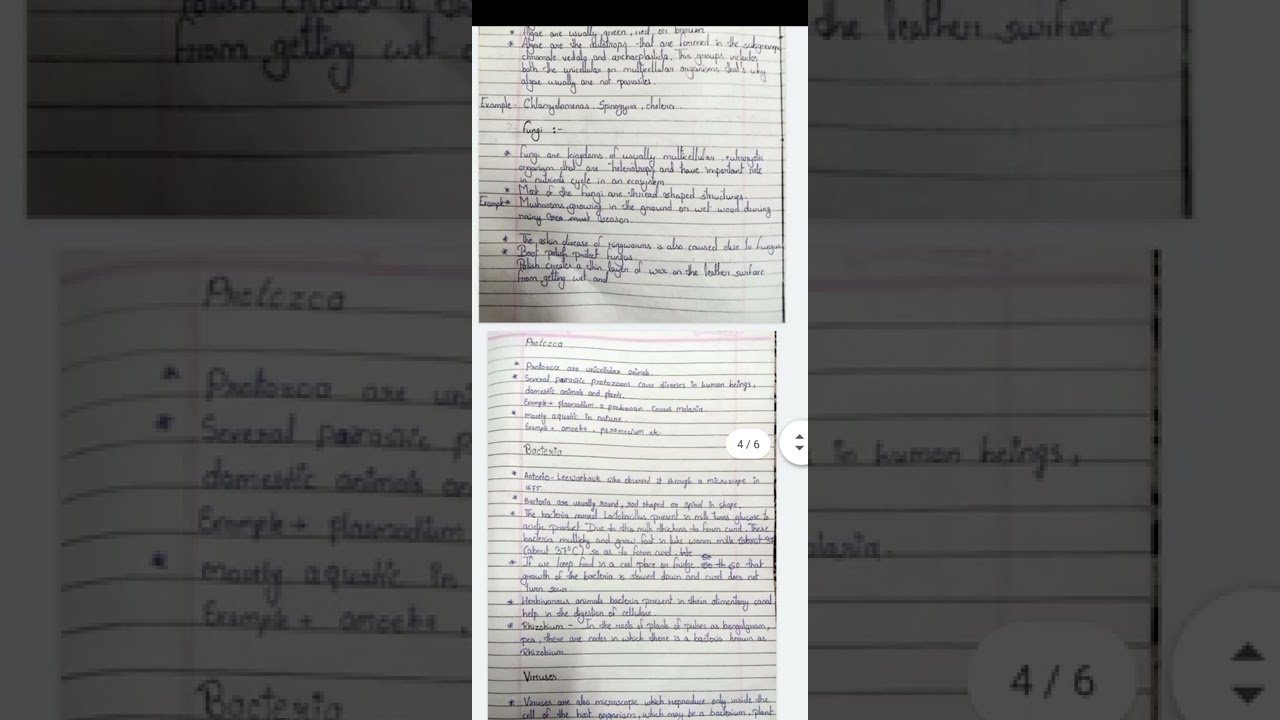 Algae are usually green, red, or brown
Algae are the that are formed in the subgroups
and archaeplastida. This groups includes
both the unicellular or multicellular organisms that's why
algae usually are not parasites.
Example - Chlamydomonas, Spirogyra, cholera.
Fungi :-
* Fungi are kingdoms of usually multicellular eukaryotic
organism that are heterotrops and have important role
in nutrients cycle in an ecosystem
* Most of the Fungi are thread shaped structures.
Example * Mushrooms growing in the ground or wet wood during
rainy season.
* The skin disease of ringworms is also caused due to fungus
* Boot polish protect fungus
Polish creates a thin layer of wax on the leather surface
from getting wet and
Protozoa
* Protozoa are unicellular animals.
* Several parasitic protozoans cause diseases in human beings,
domestic animals and plants.
Example + plasmodium a protozoan. Causes malaria.
* mostly aquatic in nature.
Example + amoeba, paramecium etc.
4/6
Bacteria
* Antonio - Leewanhock who observed it through a microscope in
1675.
* Bacteria are usually round, rod shaped or spiral in shape.
* The bacteria named Lactobacillus present in milk turns glucose to
acidic product Due to this milk thickens to form curd. These
bacteria multiply and grow fast in luke warm milk
(about 37°C) so as to form curd.
* If we keep food in a cool place or fridge so that
growth of the bacteria is slowed down and curd does not
turn sour
* Herbivorous animals bacteria present in their alimentary canal
help in the digestion of cellulose.
* Rhizobium - In the roots of plants of pulses as bengalgram,
pea, there are nodes in which there is a bacteria known as
Rhizobium.
Viruses
* Viruses are also microscopic which reproduce only inside the
cell of the host organism, which may be a bacterium, plant